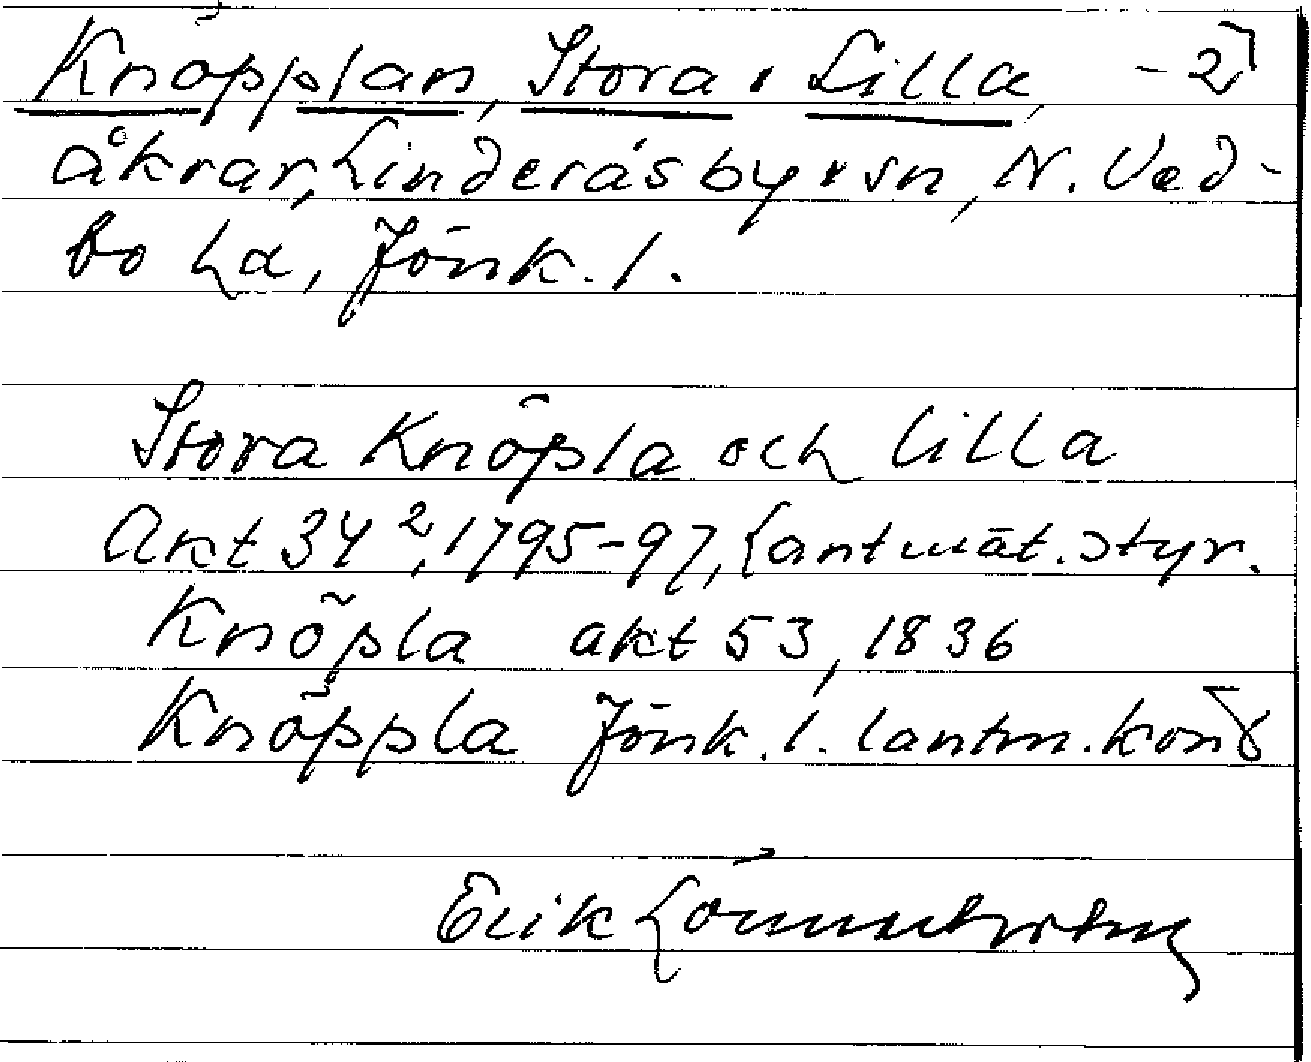 Knöpplan, Stora o Lilla, -2
åkrar, Linderås by o sn, N. Ved-
bo hd, Jönk. l.
Stora Knöpla och lilla
Akt 34², 1795-97, Lantmät.styr.
Knöpla akt 53, 1836
Knöppla Jönk. l. lantm.kont
Erik